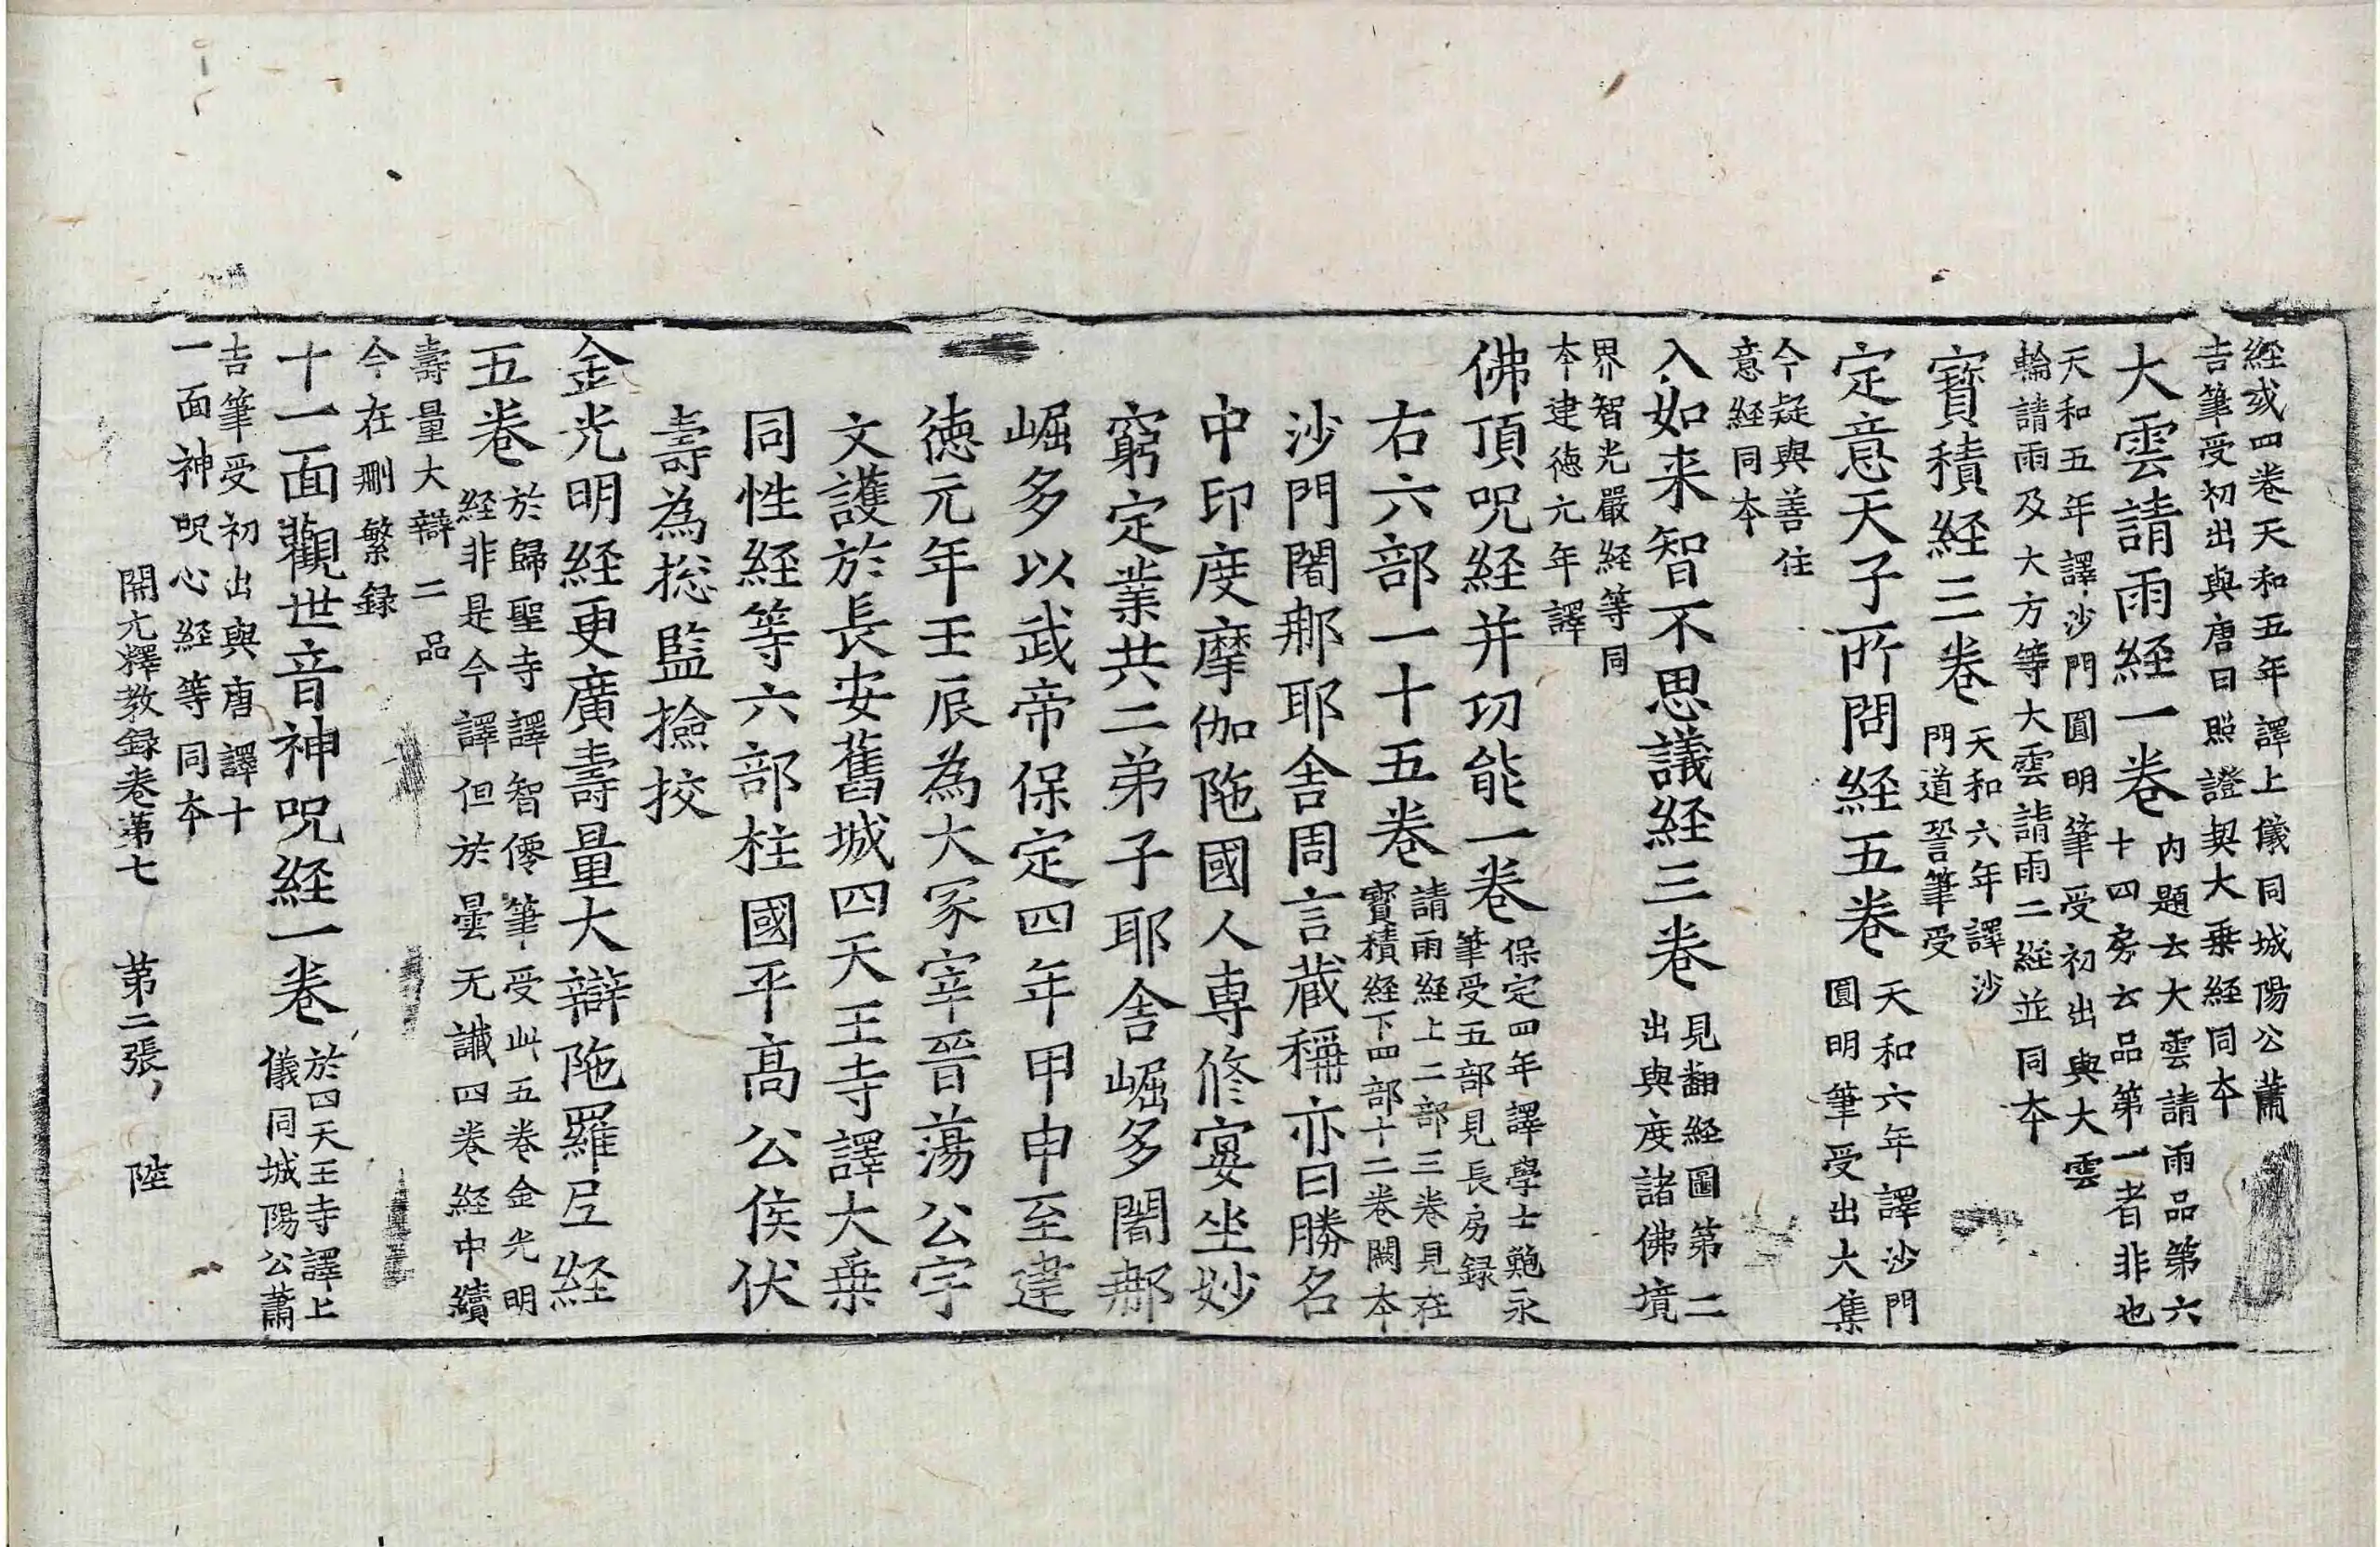 経或四巻天和五年譯上儀同城陽公蕭
吉筆受初出與唐曰照證契大乗経同夲
大雲請雨経一巻内題云大雲請雨品第六
十四房云品第一者非也
天和五年譯沙門圓明筆受初出與大雲
輪請雨及大方等大雲請雨二経並同夲
寶積経三巻天和六年譯沙
門道䛒筆受
定意天子所問経五巻天和六年譯沙門
圓明筆受出大集
今疑與善住
意経同夲
入如来智不思議経三巻見翻経圖第二
出與度諸佛境
界智光嚴経等同
夲建徳元年譯
佛頂呪経并功能一巻保定四年譯學士鮑永
筆受五部見長房録
右六部一十五巻請雨経上二部三巻見在
寶積経下四部十二巻闕夲
沙門闍那耶舎周言蔵稱亦曰勝名
中印度摩伽陁國人専修宴坐妙
窮定業共二弟子耶舎崛多闍那
崛多以武帝保定四年甲申至建
徳元年壬辰為大冢宰晉蕩公宇
文護於長安舊城四天王寺譯大乗
同性経等六部柱國平髙公侯伏
壽為揔監撿挍
金光明経更廣壽量大辯陁羅尼経
五巻於歸聖寺譯智僊筆受此五巻金光明
経非是今譯但於曇无讖四巻経中續
壽量大辯二品
今在刪繁録
十一面觀世音神呪経一巻於四天王寺譯上
儀同城陽公蕭
吉筆受初出與唐譯十
一面神呪心経等同夲
開元釋教録巻第七　第二張　陸